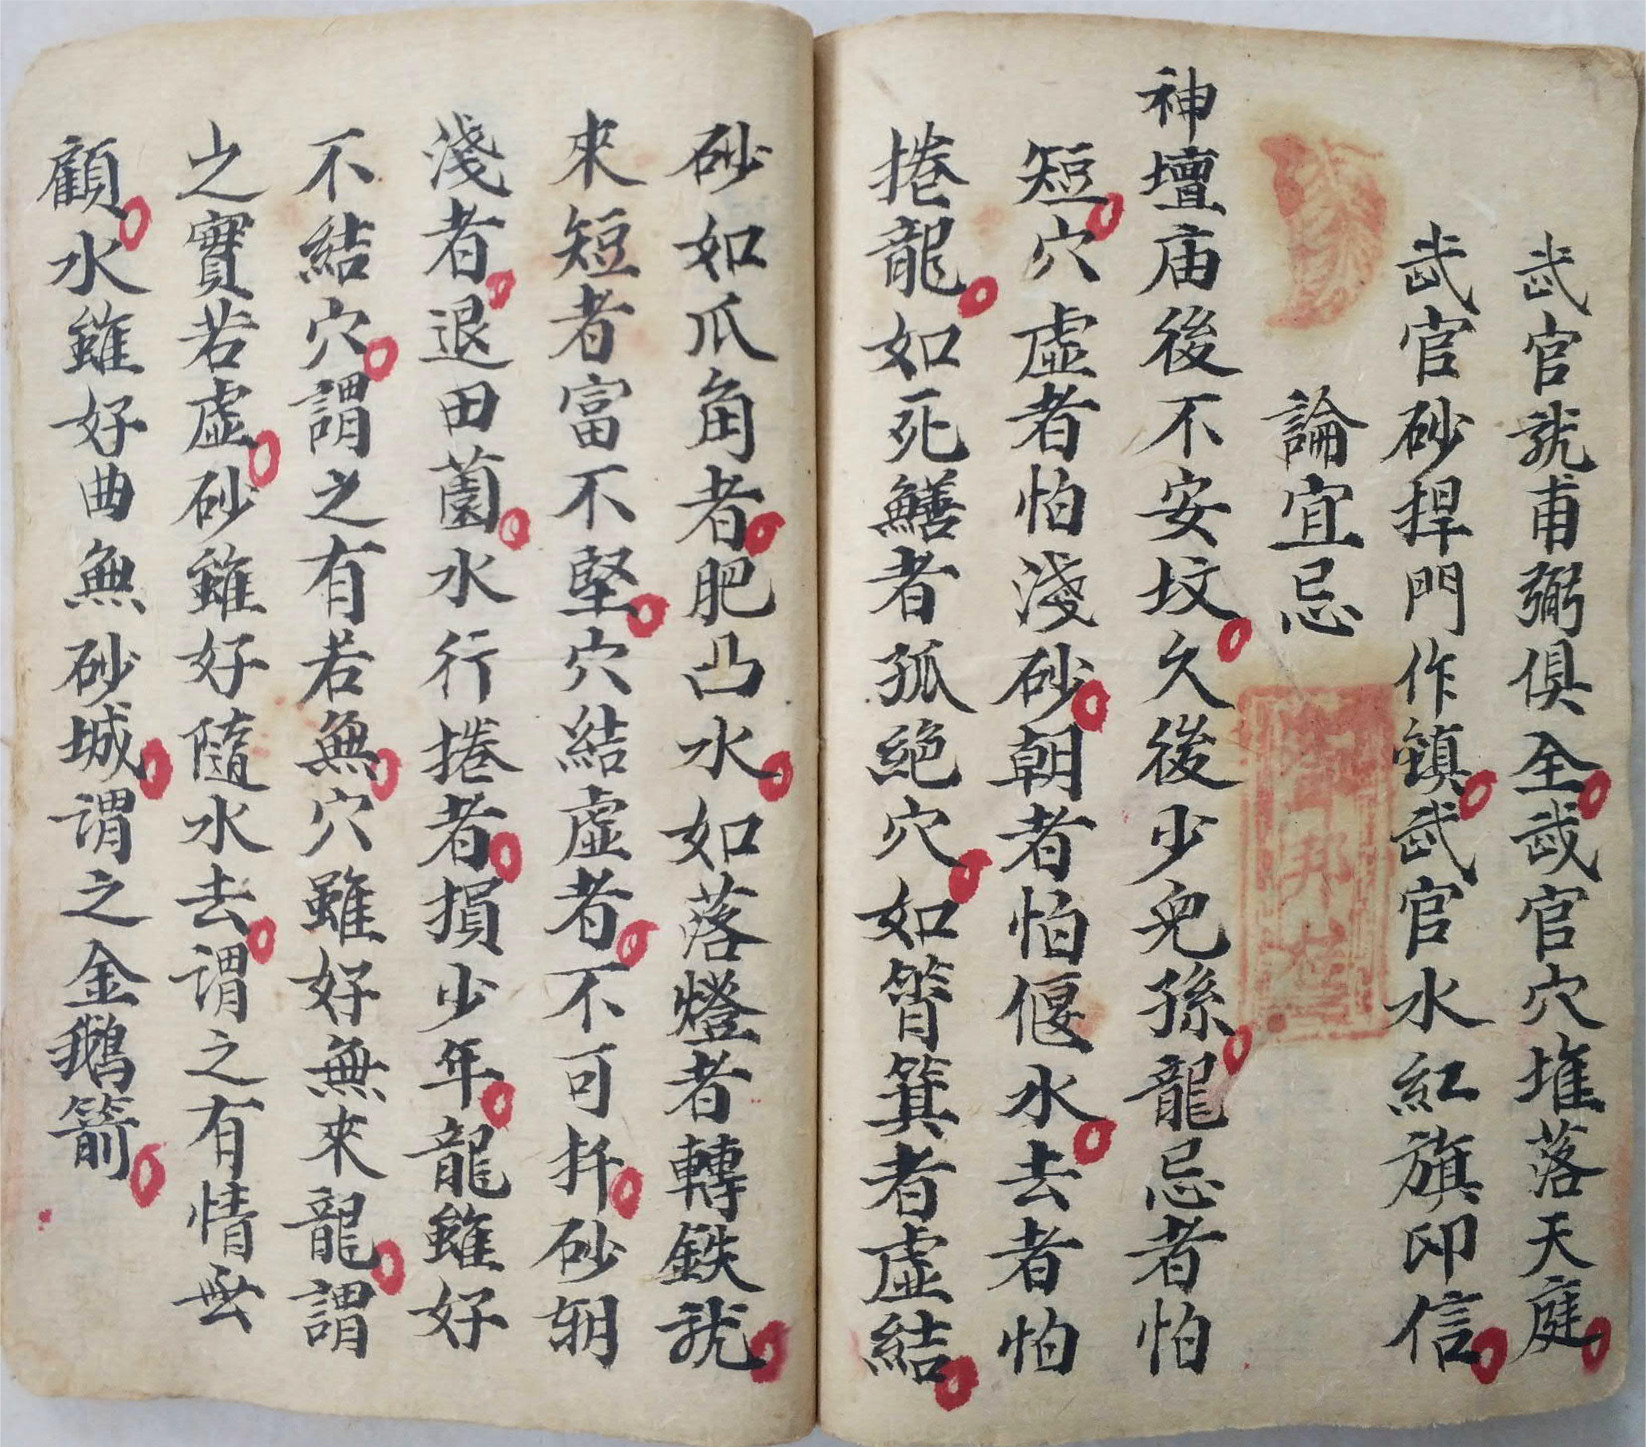 武官龍甫弼俱全武官穴堆落天庭
武官砂捍門作鎮武官水紅旗印信
論宜忌
神壇庙後不安坟久後少兒孫龍忌者怕
短穴虛者怕淺砂朝者怕偃水去者怕
捲龍如死鱔者孤絕穴如筲箕者虛結
砂如爪角者肥凸水如落燈者轉鉄龍
來短者富不堅穴結虛者不可扦砂朝
淺者退田薗水行捲者損少年龍雖好
不結穴謂之有若無穴雖好無來龍謂
之實若虛砂雖好隨水去谓之有情無
顧水雖好曲無砂城谓之金鵝箭